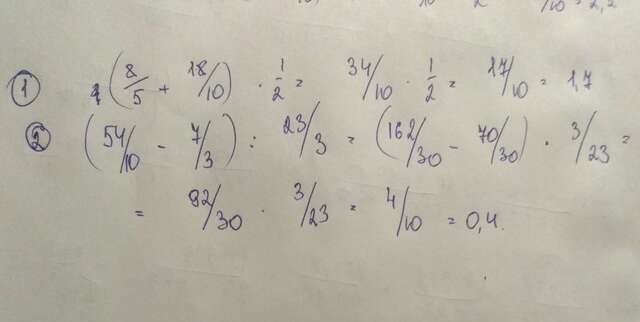 /10 = 2,2
① (8/5 + 18/10) · 1/2 = 34/10 · 1/2 = 17/10 = 1,7
② (54/10 - 7/3) : 23/3 = (162/30 - 70/30) · 3/23 =
= 92/30 · 3/23 = 4/10 = 0,4.